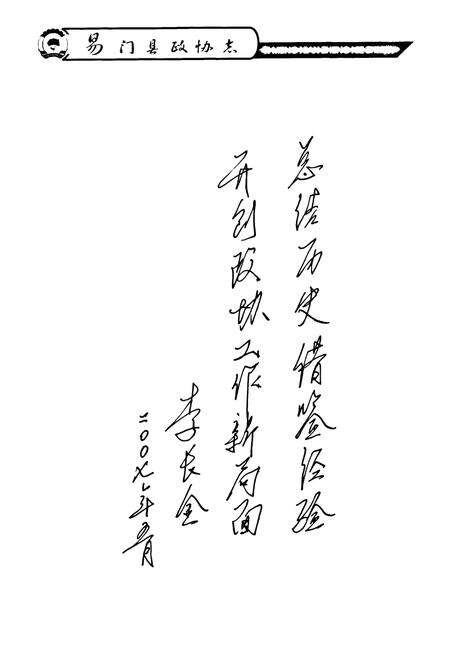 易门县政协志
总结历史借鉴经验
开创政协工作新局面
李长金
二〇〇七年五月